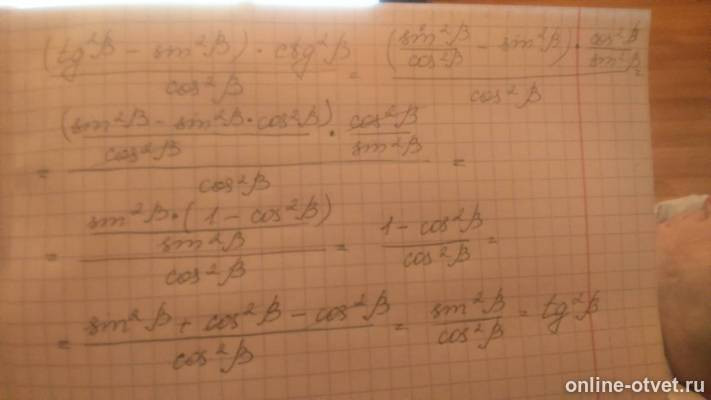 (tg²β - sin²β) · ctg²β / cos²β = (sin²β / cos²β - sin²β) · cos²β / sin²β / cos²β
= (sin²β - sin²β · cos²β) / cos²β · cos²β / sin²β / cos²β =
= sin²β · (1 - cos²β) / sin²β / cos²β = 1 - cos²β / cos²β =
= sin²β + cos²β - cos²β / cos²β = sin²β / cos²β = tg²β
online-otvet.ru